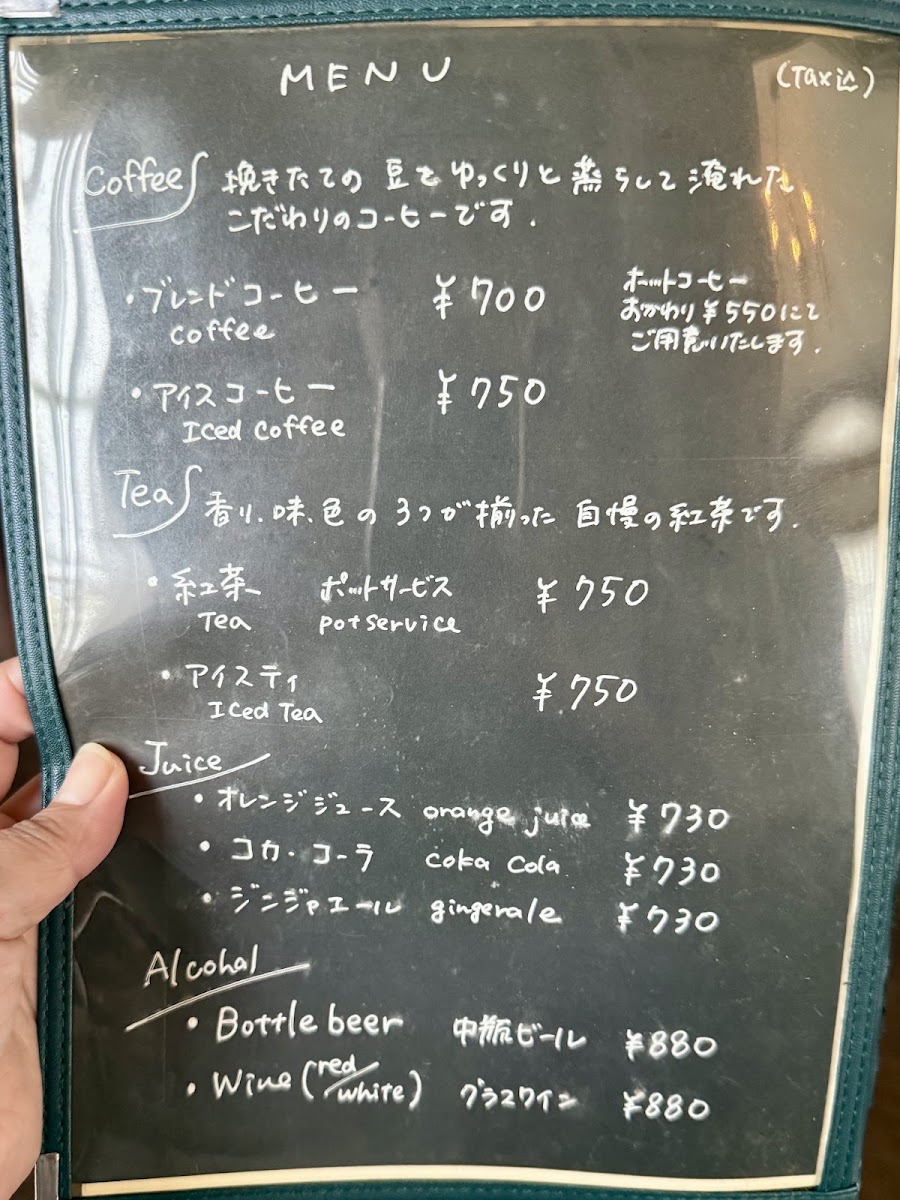 MENU
(Tax込)
Coffee 挽きたての 豆を ゆっくりと 蒸らして 淹れた
こだわりのコーヒーです.
・ブレンドコーヒー ¥700
coffee
ホットコーヒー
おかわり¥550にて
ご用意いたします.
・アイスコーヒー ¥750
Iced coffee
Tea 香り、味、色の3つが揃った 自慢の紅茶です.
・紅茶 ポットサービス ¥750
Tea potservice
・アイスティ ¥750
Iced Tea
Juice
・オレンジジュース orange juice ¥730
・コカ・コーラ coka cola ¥730
・ジンジャエール gingerale ¥730
Alcohal
・Bottle beer 中瓶ビール ¥880
・Wine (red/white) グラスワイン ¥880